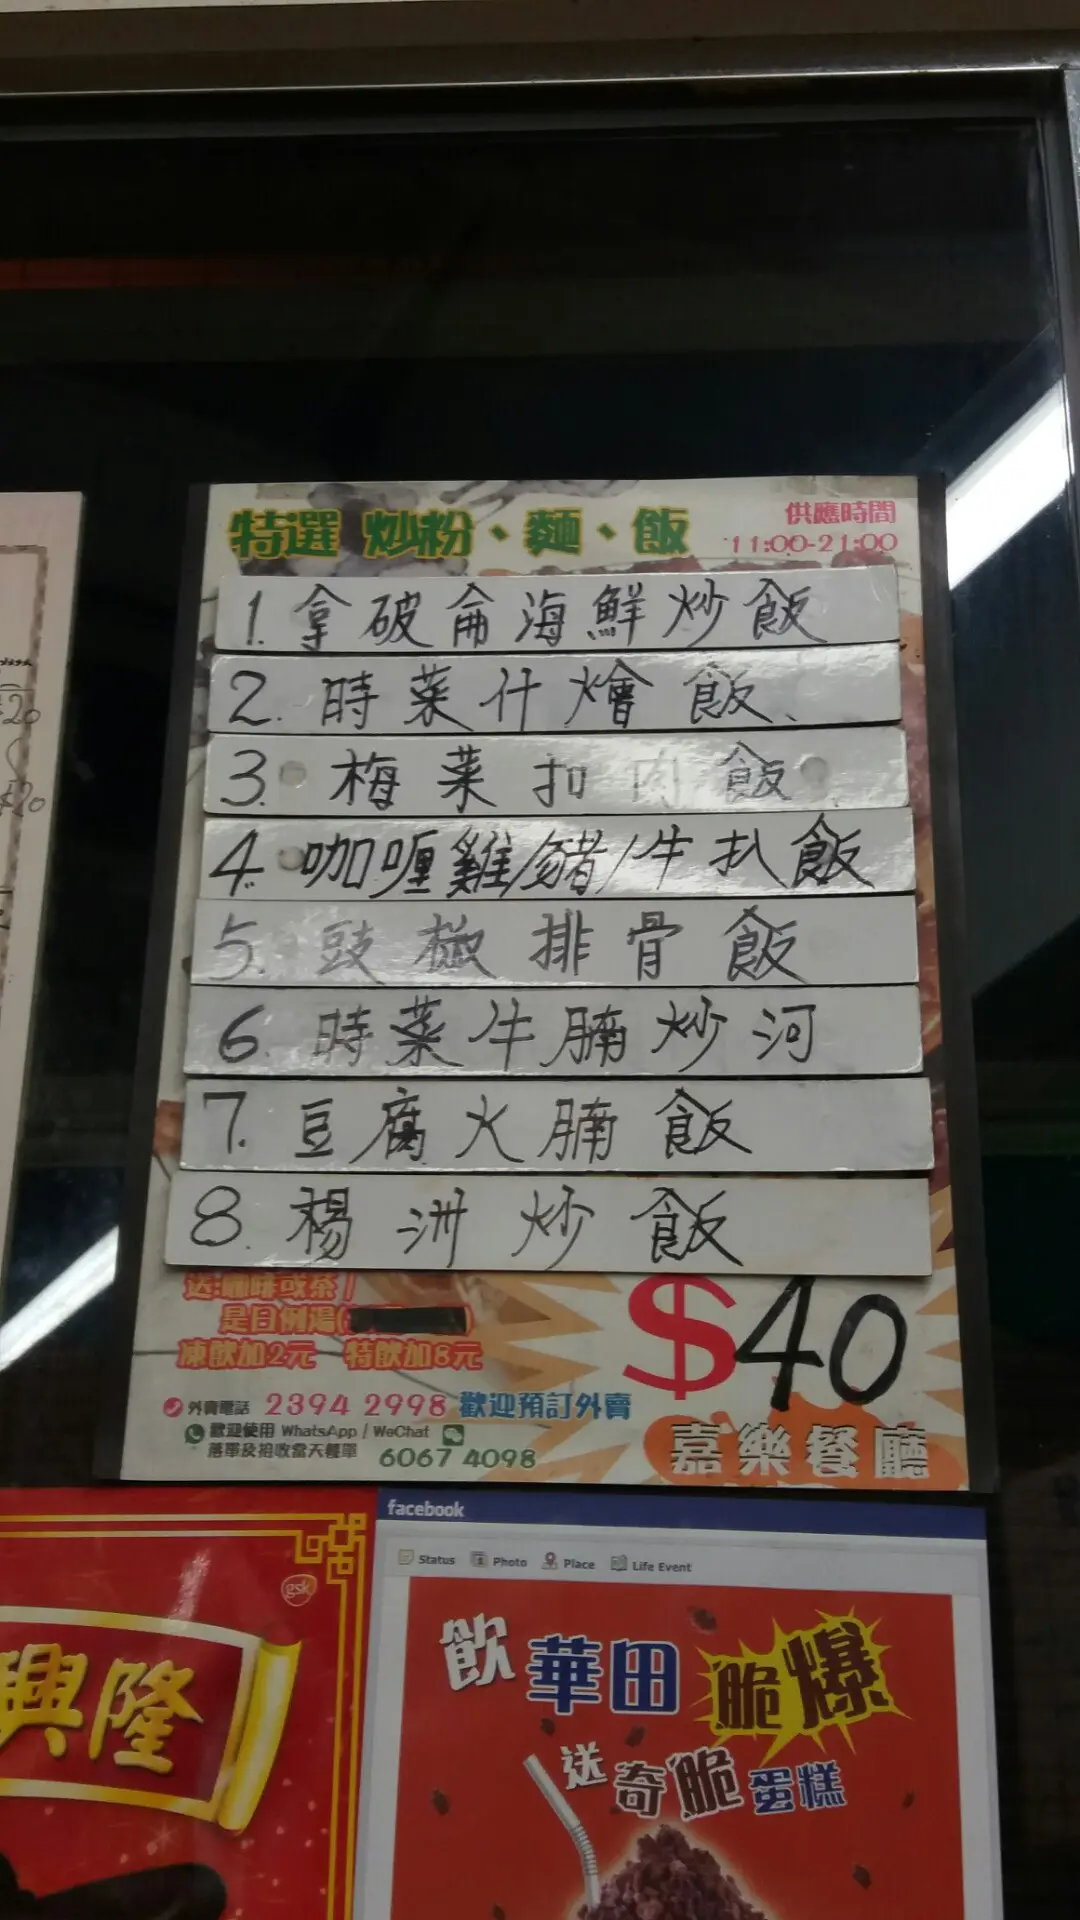 特選 炒粉、麵、飯
供應時間
11:00-21:00
1. 拿破侖海鮮炒飯
2. 時菜什燴飯
3. 梅菜扣肉飯
4. 咖喱雞/豬/牛扒飯
5. 豉椒排骨飯
6. 時菜牛腩炒河
7. 豆腐火腩飯
8. 楊洲炒飯
送:咖啡或茶/
是日例湯(
凍飲加2元 特飲加8元
$40
外賣電話 2394 2998 歡迎預訂外賣
歡迎使用 WhatsApp / WeChat
落單及拍收當天餐單 6067 4098
嘉樂餐廳
$20
$20
gsk
興隆
facebook
Status Photo Place Life Event
飲華田脆爆
送奇脆蛋糕